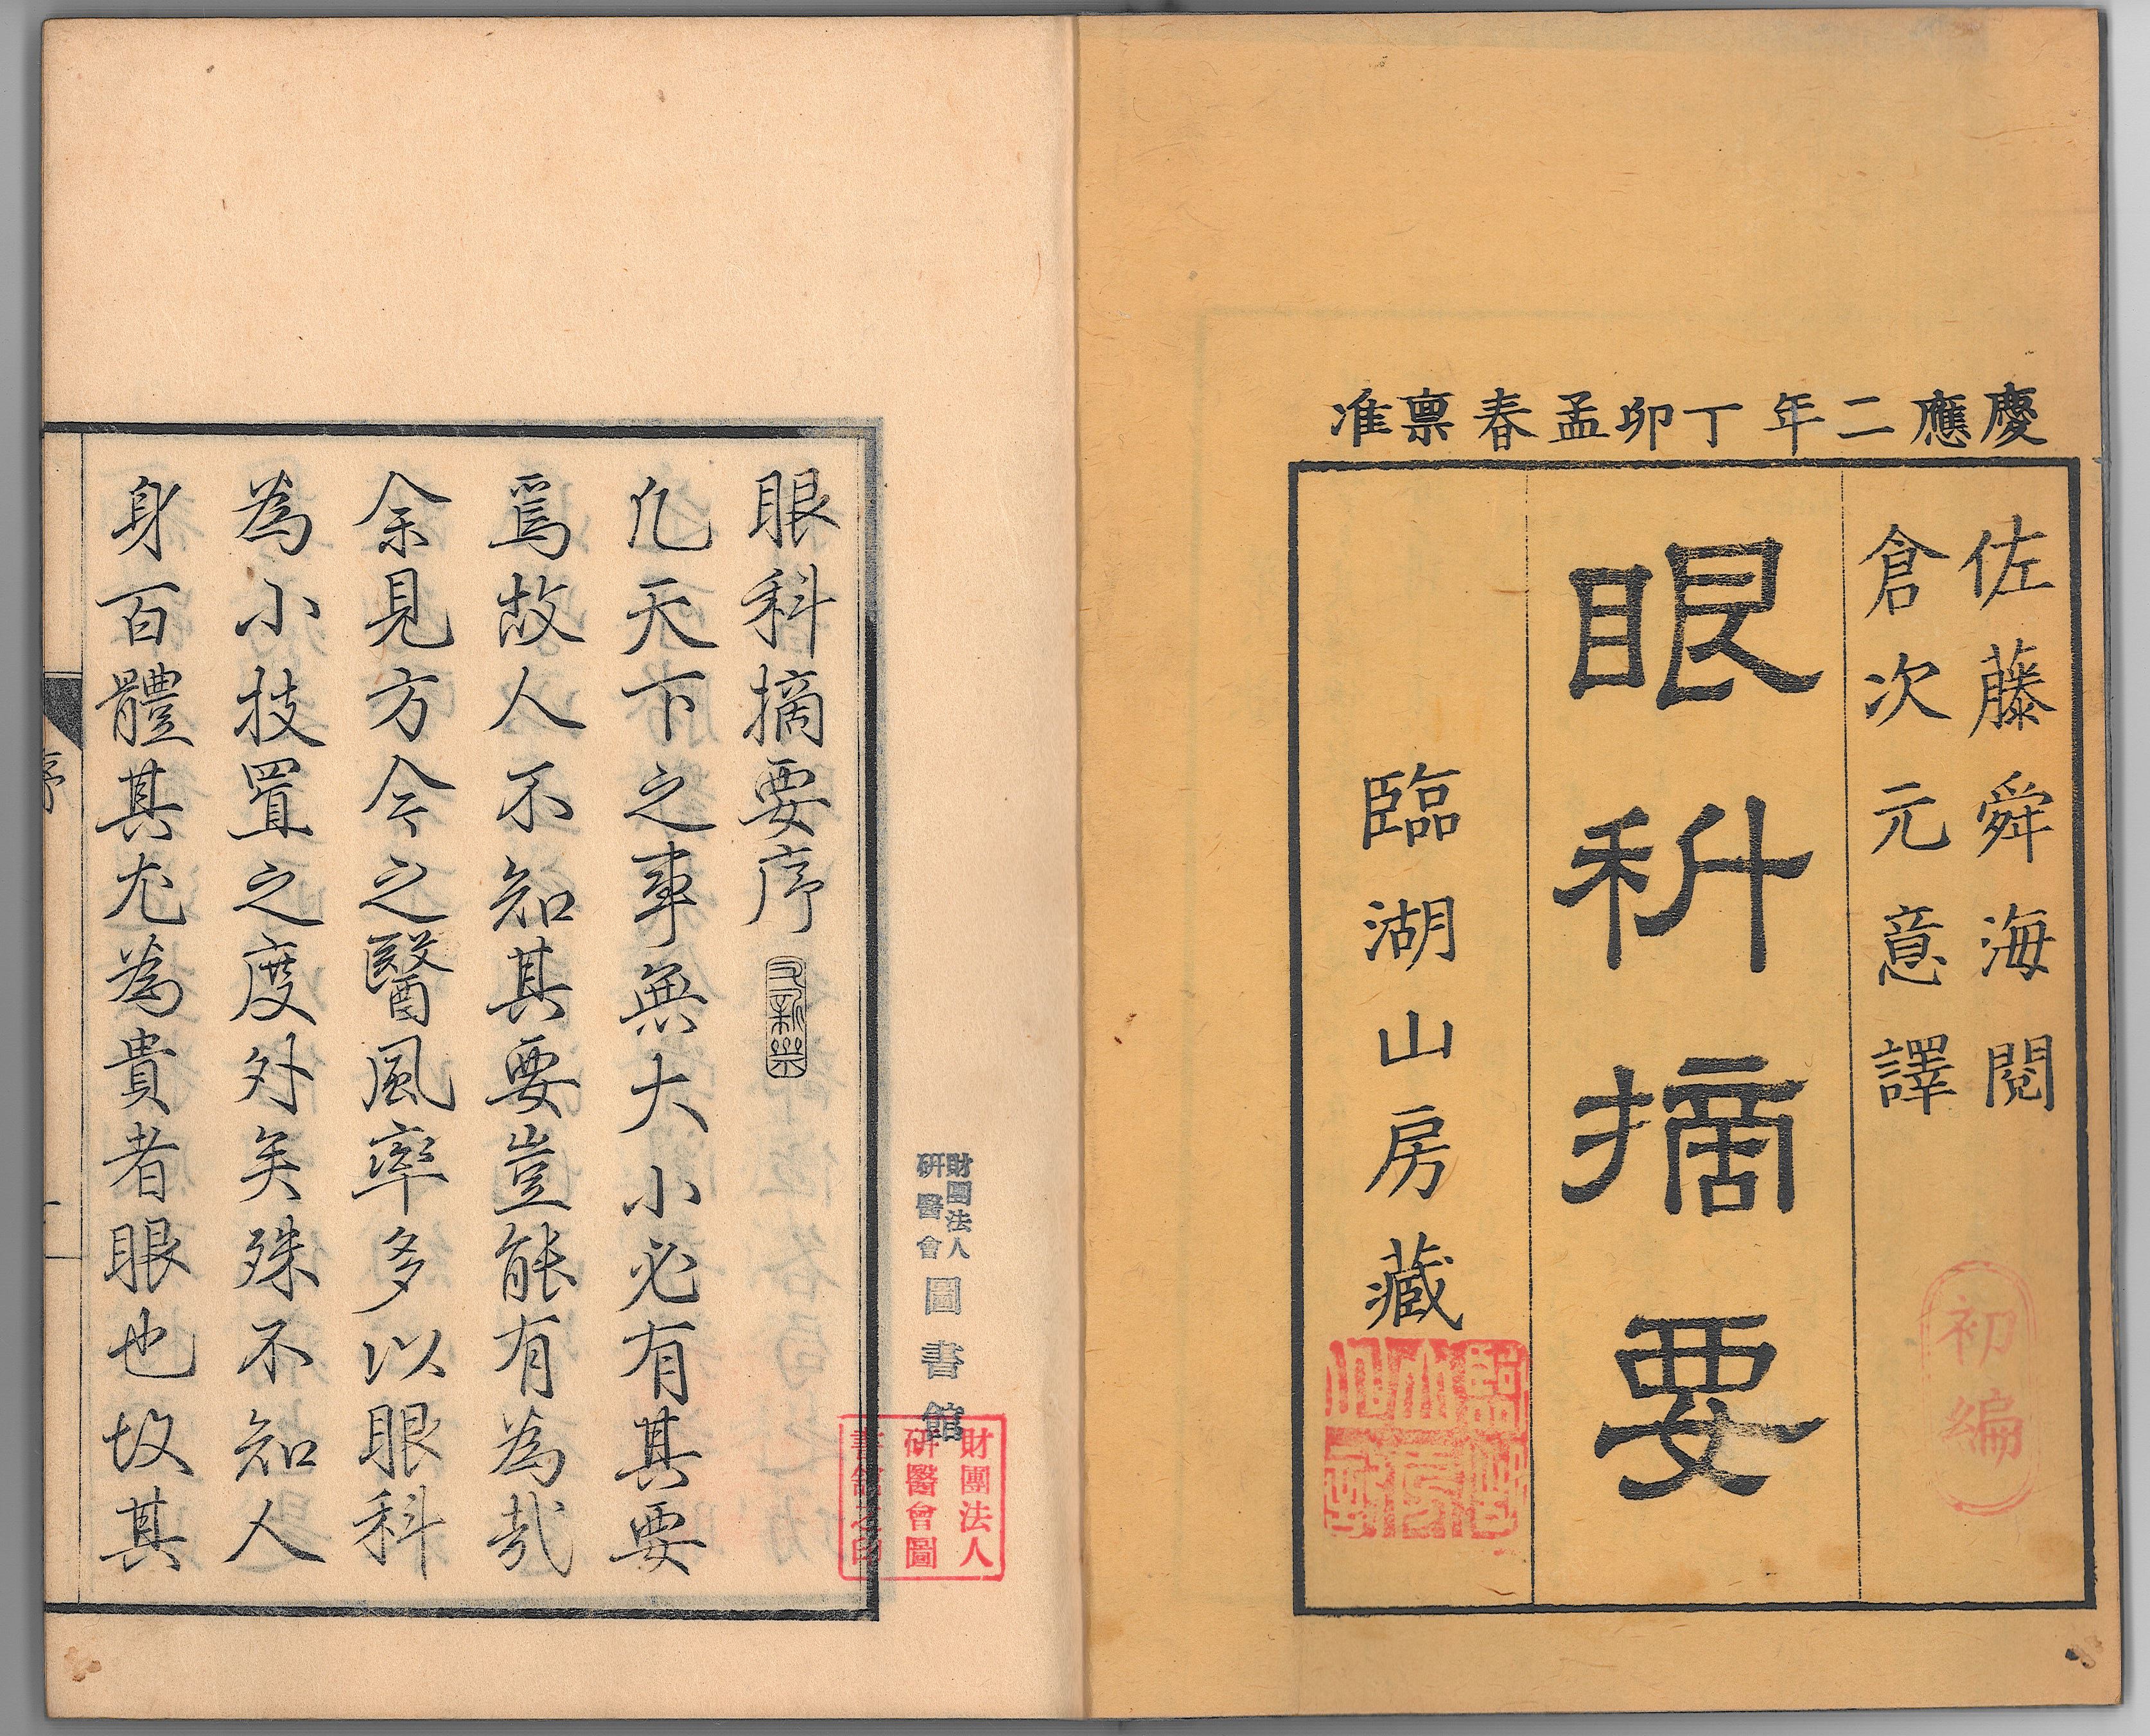 慶應二年丁卯孟春稟准
佐藤舜海閲
倉次元意譯
初編
眼科摘要
臨湖山房藏
眼科摘要序
凢天下之事無大小必有其要
焉故人不知其要豈能有為哉
余見方今之醫風率多以眼科
為小技置之度外矣殊不知人
身百體其尤為貴者眼也故其
序
財團法人
研醫會
圖書館
財團法人
研醫會圖
書館之印